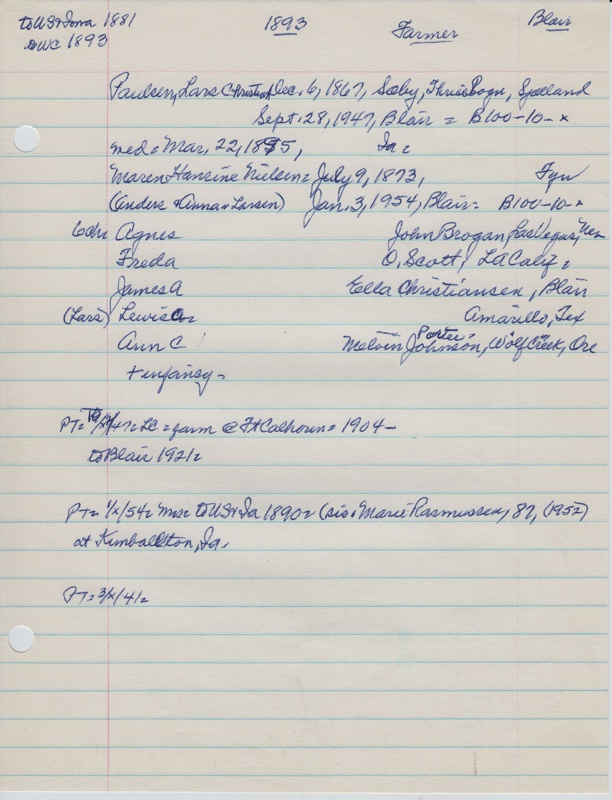 to US & Iowa 1881 1893 Farmer Blair
to WC 1893
Paulsen, Lars Christian Dec. 6, 1867, Saeby,
Sept. 28, 1947, Blair = B100-10-x
med = Mar. 22, 1895, Ia =
Maren Hansine Nielsen = July 9, 1873, Fyn
(Anders & Anna Larsen) Jan. 3, 1954, Blair = B100-10-x
6 ch Agnes John Brogan, Las Vegas, Nev
Freda O. Scott, LA Calif =
James A Ella Christiansen, Blair
(Lars) Lewis C = Amarillo, Tex
Ann C Melvin Johnson, "Wolf Creek", Ore
Porter =
+ infancy =
PT = LC = farm @ Ft Calhoun = 1904 -
to Blair 1921 =
PT = 1/x/54 = Mrs = to US & Ia 1890 = (sis. Marie Rasmussen, 82, (1952)
at Kimballton, Ia.
PT = 3/x/41 =